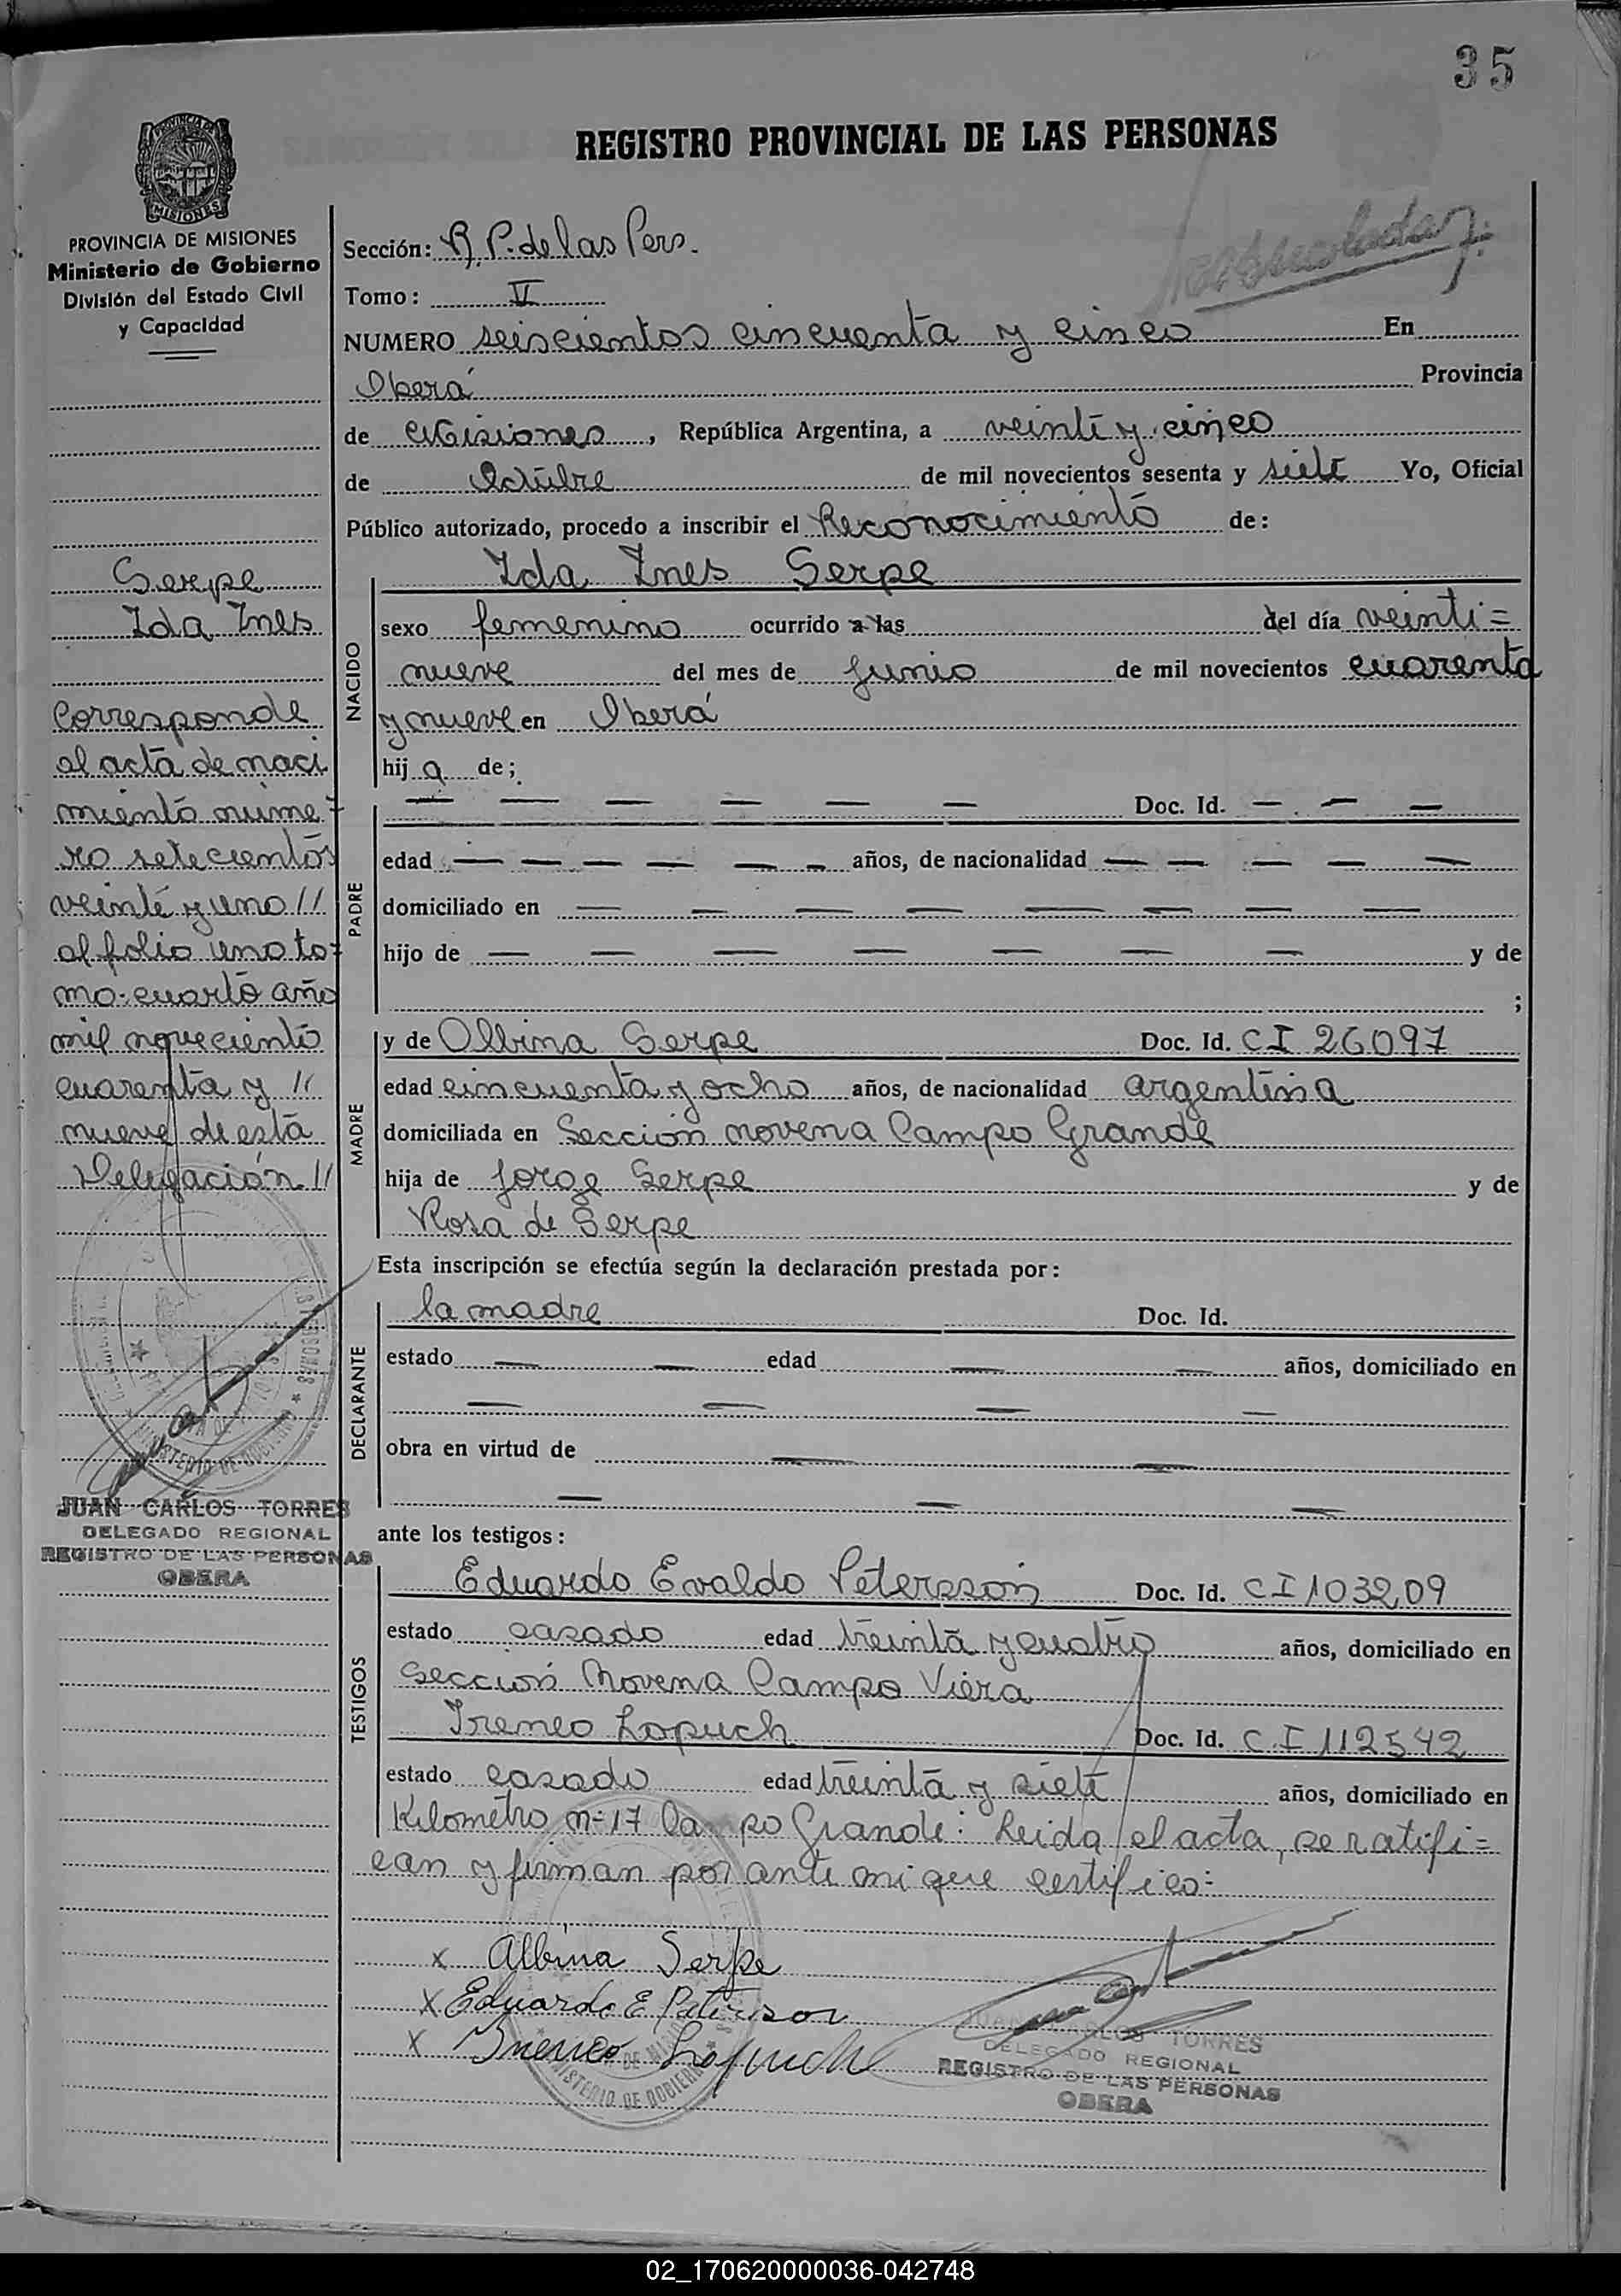 35
REGISTRO PROVINCIAL DE LAS PERSONAS
PROVINCIA DE MISIONES
Ministerio de Gobierno
División del Estado Civil
y Capacidad
Serpe
Ida Ines
Corresponde
al acta de naci
miento núme=
ro setecientos
veinte y uno //
al folio uno to=
mo cuarto año
mil novecientos
cuarenta y //
nueve de esta
Delegación //
JUAN CARLOS TORRES
DELEGADO REGIONAL
REGISTRO DE LAS PERSONAS
OBERA
Sección: R. P. de las Pers.
Tomo: II
NUMERO seiscientos cincuenta y cinco En
Oberá Provincia
de Misiones, República Argentina, a veinte y cinco
de Octubre de mil novecientos sesenta y siete Yo, Oficial
Público autorizado, procedo a inscribir el Reconocimiento de:
NACIDO
Ida Ines Serpe
sexo femenino ocurrido a las del día veinti=
nueve del mes de Junio de mil novecientos cuarenta
y nueve en Oberá
hija de;
PADRE
— — — — — — Doc. Id. — — —
edad — — — — — — años, de nacionalidad — — — — —
domiciliado en — — — — — — — —
hijo de — — — — — — — y de
;
MADRE
y de Olbina Serpe Doc. Id. CI 26097
edad cincuenta y ocho años, de nacionalidad argentina
domiciliada en Sección novena Campo Grande
hija de Jorge Serpe y de
Rosa de Serpe
Esta inscripción se efectúa según la declaración prestada por:
DECLARANTE
la madre Doc. Id.
estado — — edad — — años, domiciliado en
— — — —
obra en virtud de — —
— — —
ante los testigos:
TESTIGOS
Eduardo Evaldo Petersson Doc. Id. CI 103209
estado casado edad treinta y cuatro años, domiciliado en
Sección Novena Campo Viera
Ireneo Lopuch Doc. Id. C.I 112542
estado casado edad treinta y siete años, domiciliado en
Kilometro nº 17 Campo Grande: Leida el acta, se ratifi=
can y firman por ante mi que certifico:
x Albina Serpe
x Eduardo E Paterson
x Ireneo Lopuch
JUAN CARLOS TORRES
DELEGADO REGIONAL
REGISTRO DE LAS PERSONAS
OBERA
02_170620000036-042748